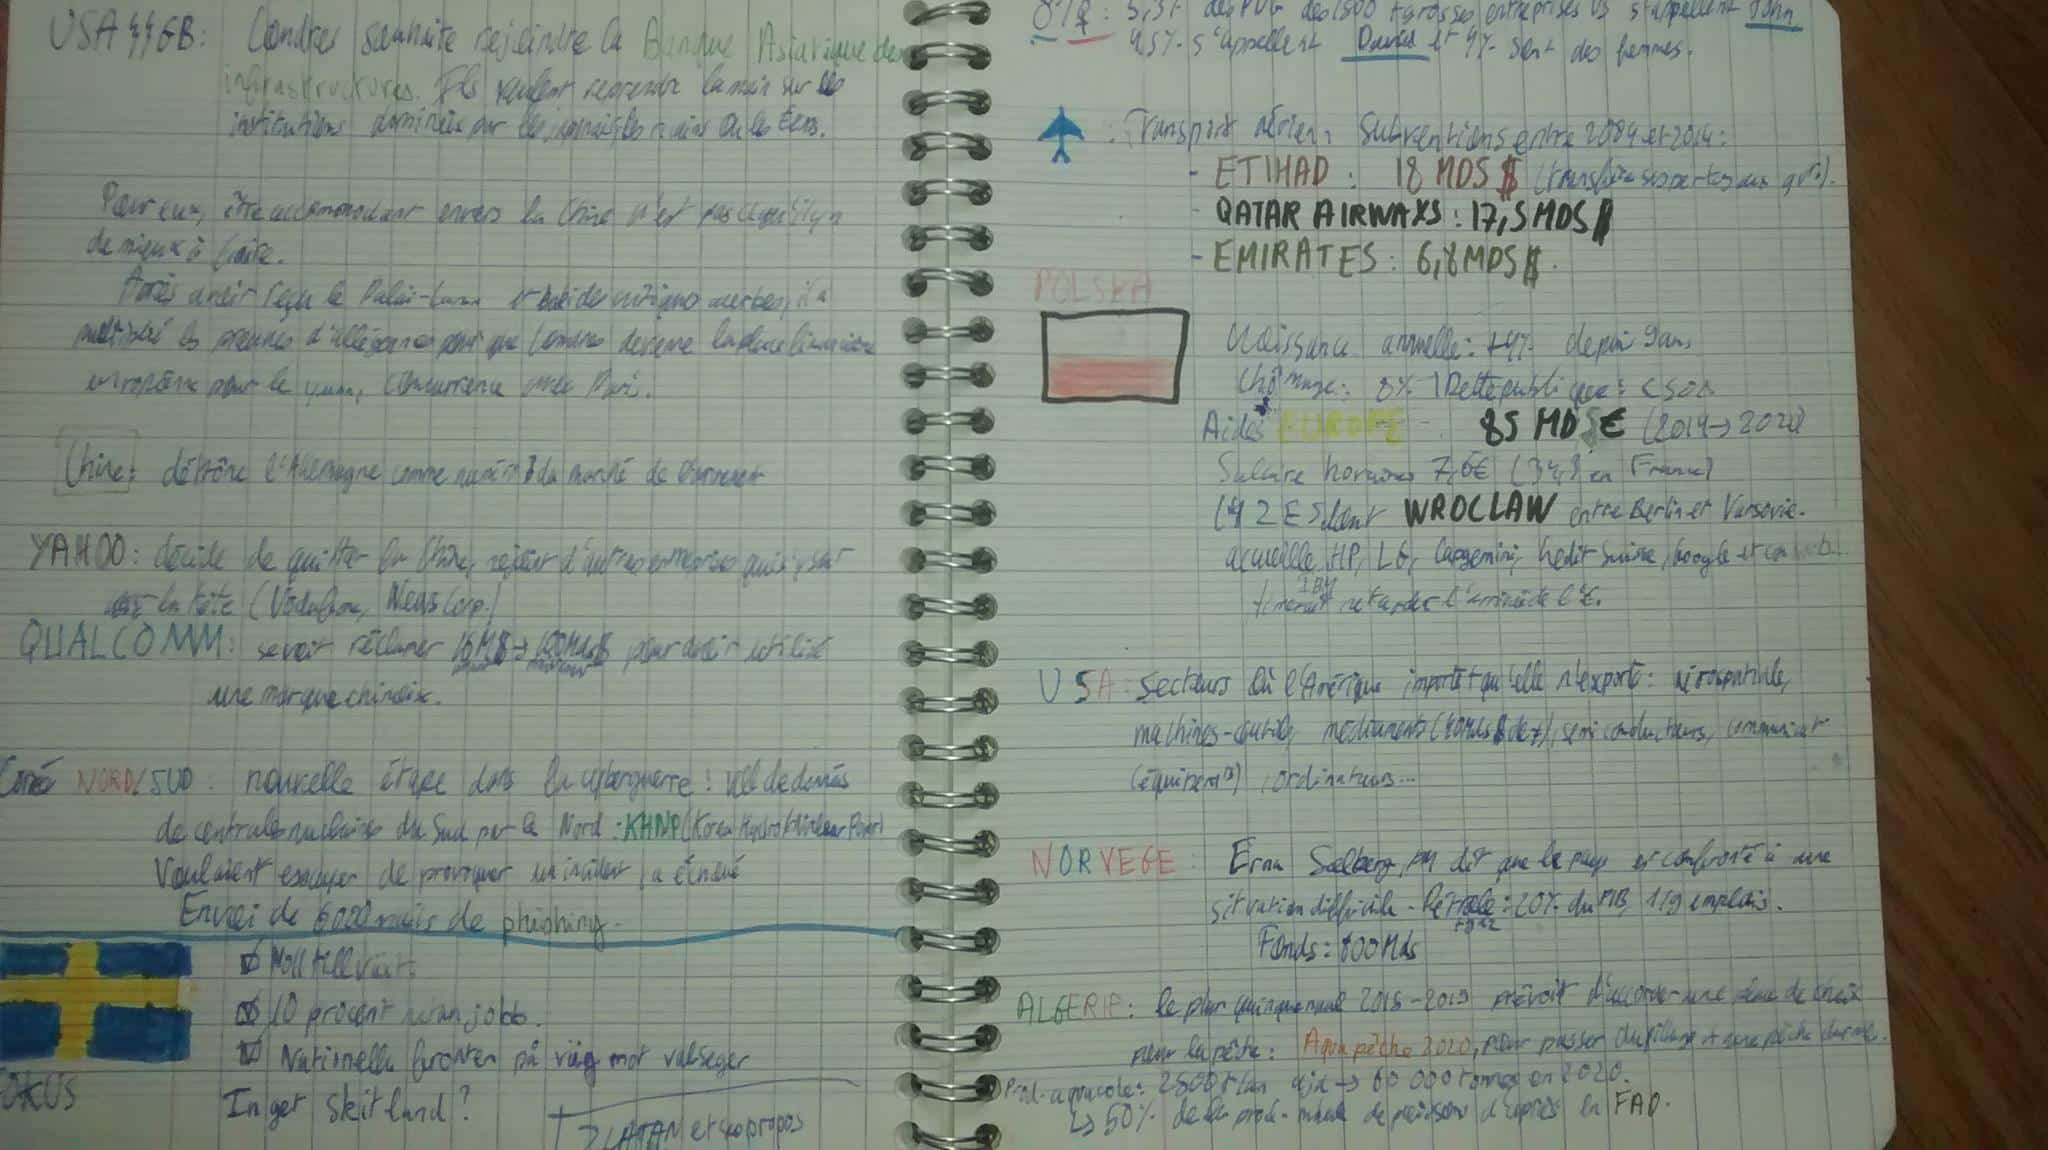 USA ↯↯ GB: Londres souhaite rejoindre la Banque Asiatique des
infrastructures. Ils veulent reprendre la main sur les
institutions dominées par les
Pour eux, être accommodant envers la Chine n'est pas ce qu'il y a
de mieux à faire.
Après avoir reçu le Dalaï-Lama il a
multiplié les preuves d'allégeance pour que Londres devienne la place financière
européenne pour le yuan, concurrence avec Paris.
Chine: détrône l'Allemagne comme numéro 3 du marché de l'armement
YAHOO: décide de quitter la Chine, rejoint d'autres entreprises qui s'y sont
en tête (Vodafone, News Corp.)
QUALCOMM: se voit réclamer 16M$ → 100M$ pour avoir utilisé
une marque chinoise.
Corée NORD/SUD: nouvelle étape dans la cyberguerre: vol de données
de centrales nucléaires du Sud par le Nord: KHNP (Korea Hydro Nuclear Power)
Voulaient essayer de provoquer un incident, a échoué
Envoi de 6000 mails de phishing.
Noll tillväxt
10 procent utan jobb.
Nationella fronten på väg mot valseger
FOKUS
Inget skitland?
ZLATAN et ses propos
5,3% des PDG des 1500 + grosses entreprises US s'appellent John
4,5% s'appellent David et 4% sont des femmes.
: Transport aérien, Subventions entre 2004 et 2014:
- ETIHAD: 18 MDS $ (transfère ses pertes au gvt).
- QATAR AIRWAYS: 17,5 MDS $
- EMIRATES: 6,8 MDS $.
POLSKA
Croissance annuelle: +4% depuis 9 ans
Chômage: 8% | Dette publique: < 50%
Aides EUROPE 85 MDS € (2014→2020)
Salaire horaire 7,6€ (34,3 en France)
14 ZES dont WROCLAW entre Berlin et Varsovie.
accueille HP, LG, Capgemini, Crédit Suisse, Google et
IBM
retarder l'arrivée de l'€.
USA: Secteurs où l'Amérique importe + qu'elle n'exporte: aérospatiale,
machines-outils, médicaments, semi conducteurs, communicat°
(équipemts), ordinateurs...
NORVEGE: Erna Solberg, PM dit que le pays est confronté à une
situation difficile - Pétrole: 20% du PIB, 1/9 emplois.
+ gaz
Fonds: 800 Mds
ALGERIE: le plan quinquennal 2015-2019 prévoit d'accorder une
pour la pêche: Aquapêche 2020, pour passer du pillage à une pêche durable.
Prod. aquacole: 2500t/an ajd → 60 000 tonnes en 2020.
↳ 50% de la prod. mondiale de poissons d'après la FAO.